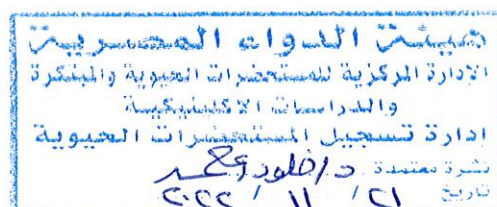 هيئة الدواء المصرية
الإدارة المركزية للمستحضرات الحيوية والمبتكرة
والدراسات الاكلينيكية
ادارة تسجيل المستحضرات الحيوية
نشرة معتمدة د/خلود محمد
تاريخ ٢١ / ١١ / ٢٠٢٢